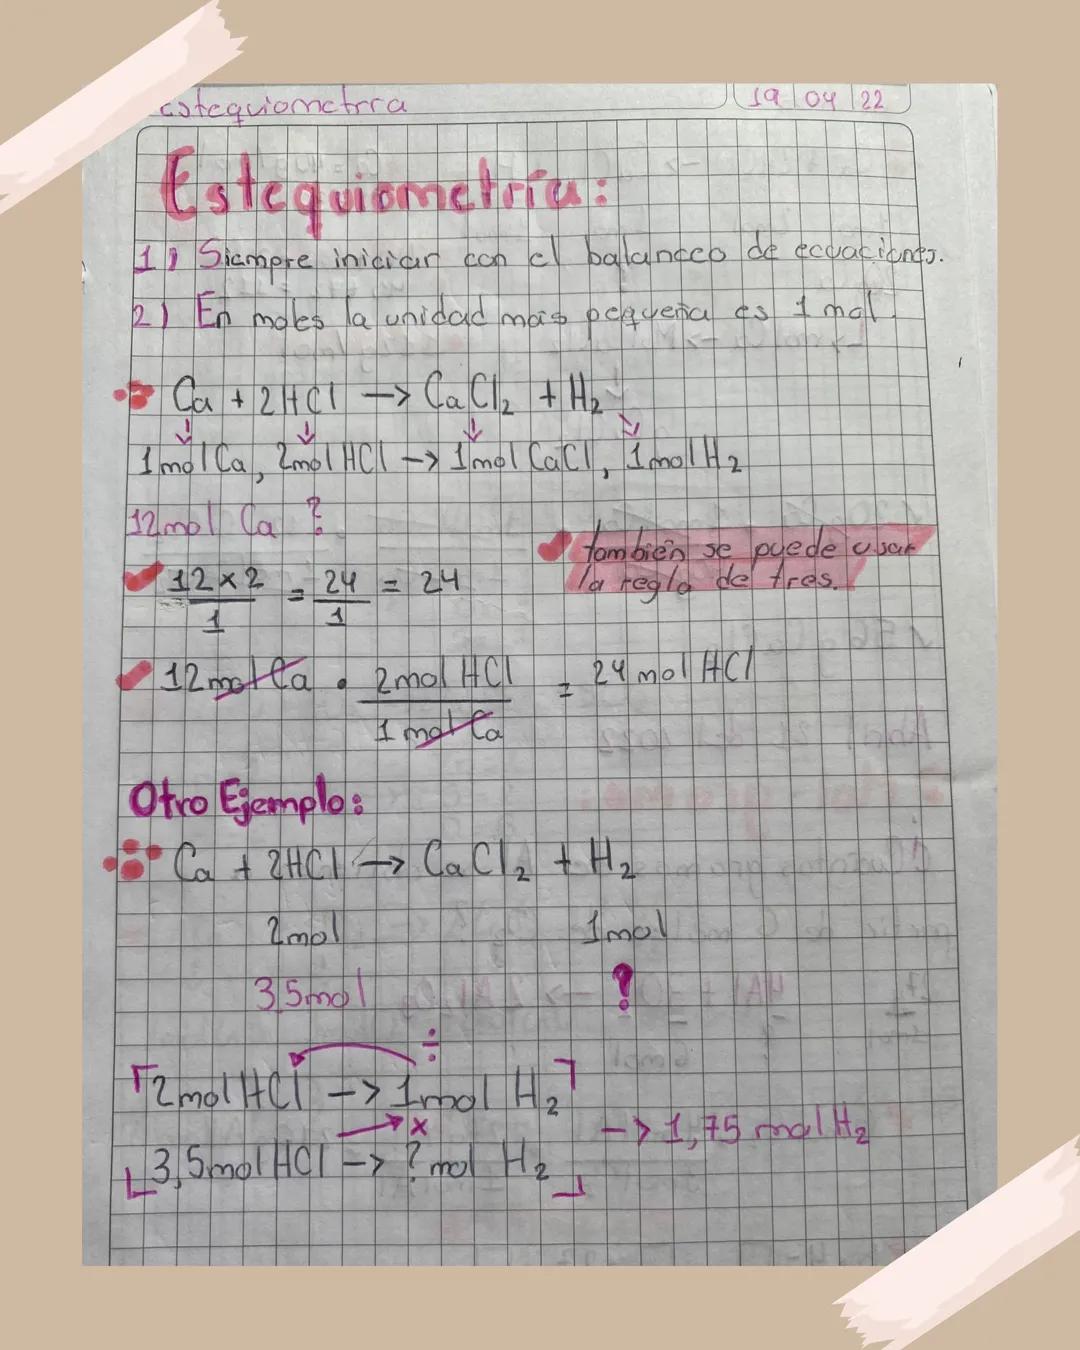 estequiometria
19 04 22
Estequiometría:
1) Siempre iniciar con el balanceo de ecuaciones.
2) En moles la unidad más pequeña es 1 mol
Ca + 2HCl -> CaCl₂ + H₂
1mol Ca, 2mol HCl -> 1mol CaCl, 1mol H₂
12mol Ca ?
también se puede usar
la regla de tres.
12 x 2 / 1 = 24 / 1 = 24
12 mol Ca • 2mol HCl / 1 mol Ca = 24 mol HCl
Otro Ejemplo:
Ca + 2HCl -> CaCl₂ + H₂
2mol 1mol
3,5mol ?
÷
2mol HCl -> 1mol H₂
x
-> 1,75 mol H₂
3,5mol HCl -> ? mol H₂